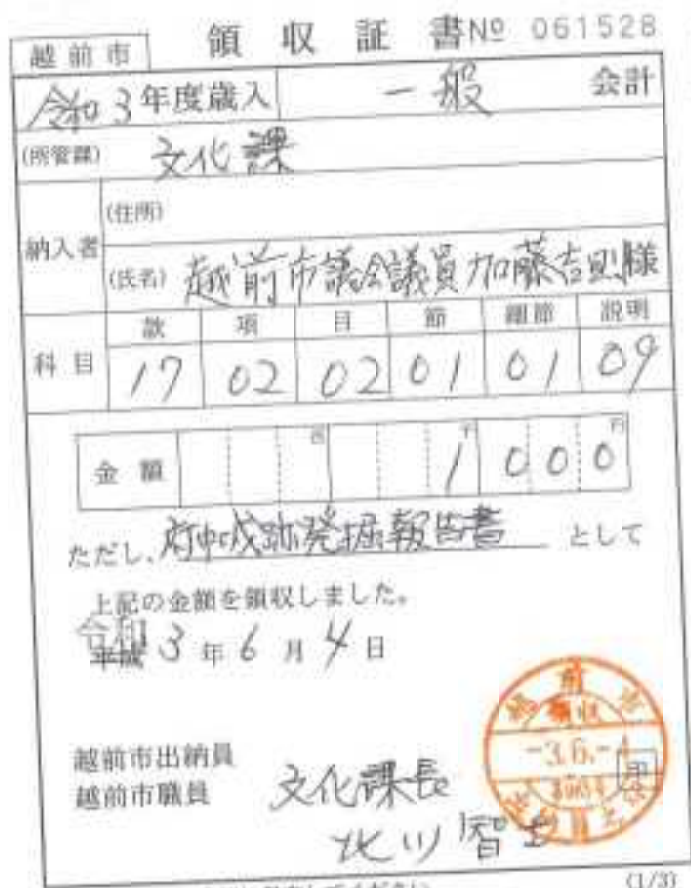 越前市 領収証書 № 061528
令和3年度歳入 一般 会計
(所管課) 文化課
納入者 (住所)
(氏名) 越前市議会議員加藤吉則様
款 項 目 節 細節 説明
科目 17 02 02 01 01 09
百 千 円
金額 1 0 0 0
ただし、府中城跡発掘報告書 として
上記の金額を領収しました。
令和
平成 3 年 6 月 4 日
越前市
領収
-3.6.-4
越前市出納員
越前市職員 文化課長
印
北川智
(1/3)